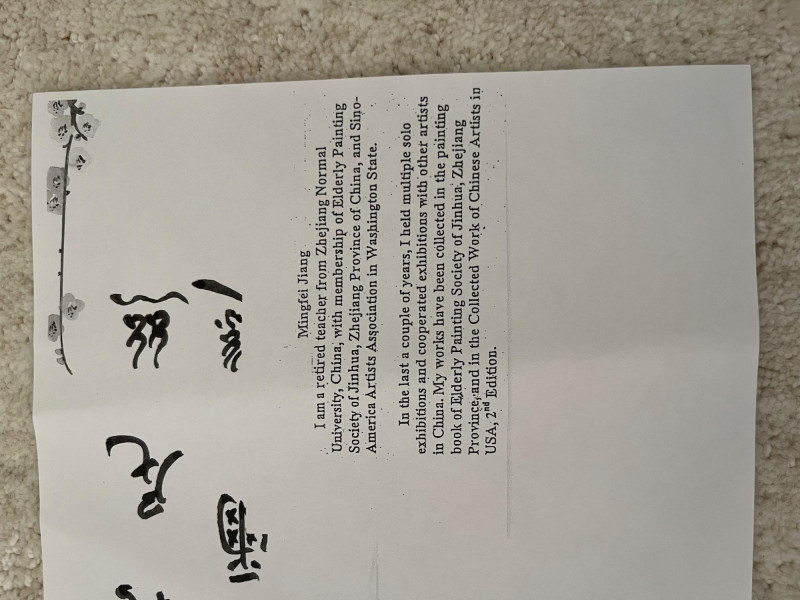 Mingfei Jiang
I am a retired teacher from Zhejiang Normal
University, China, with membership of Elderly Painting
Society of Jinhua, Zhejiang Province of China, and Sino-
America Artists Association in Washington State.
In the last a couple of years, I held multiple solo
exhibitions and cooperated exhibitions with other artists
in China. My works have been collected in the painting
book of Elderly Painting Society of Jinhua, Zhejiang
Province, and in the Collected Work of Chinese Artists in
USA, 2nd Edition.